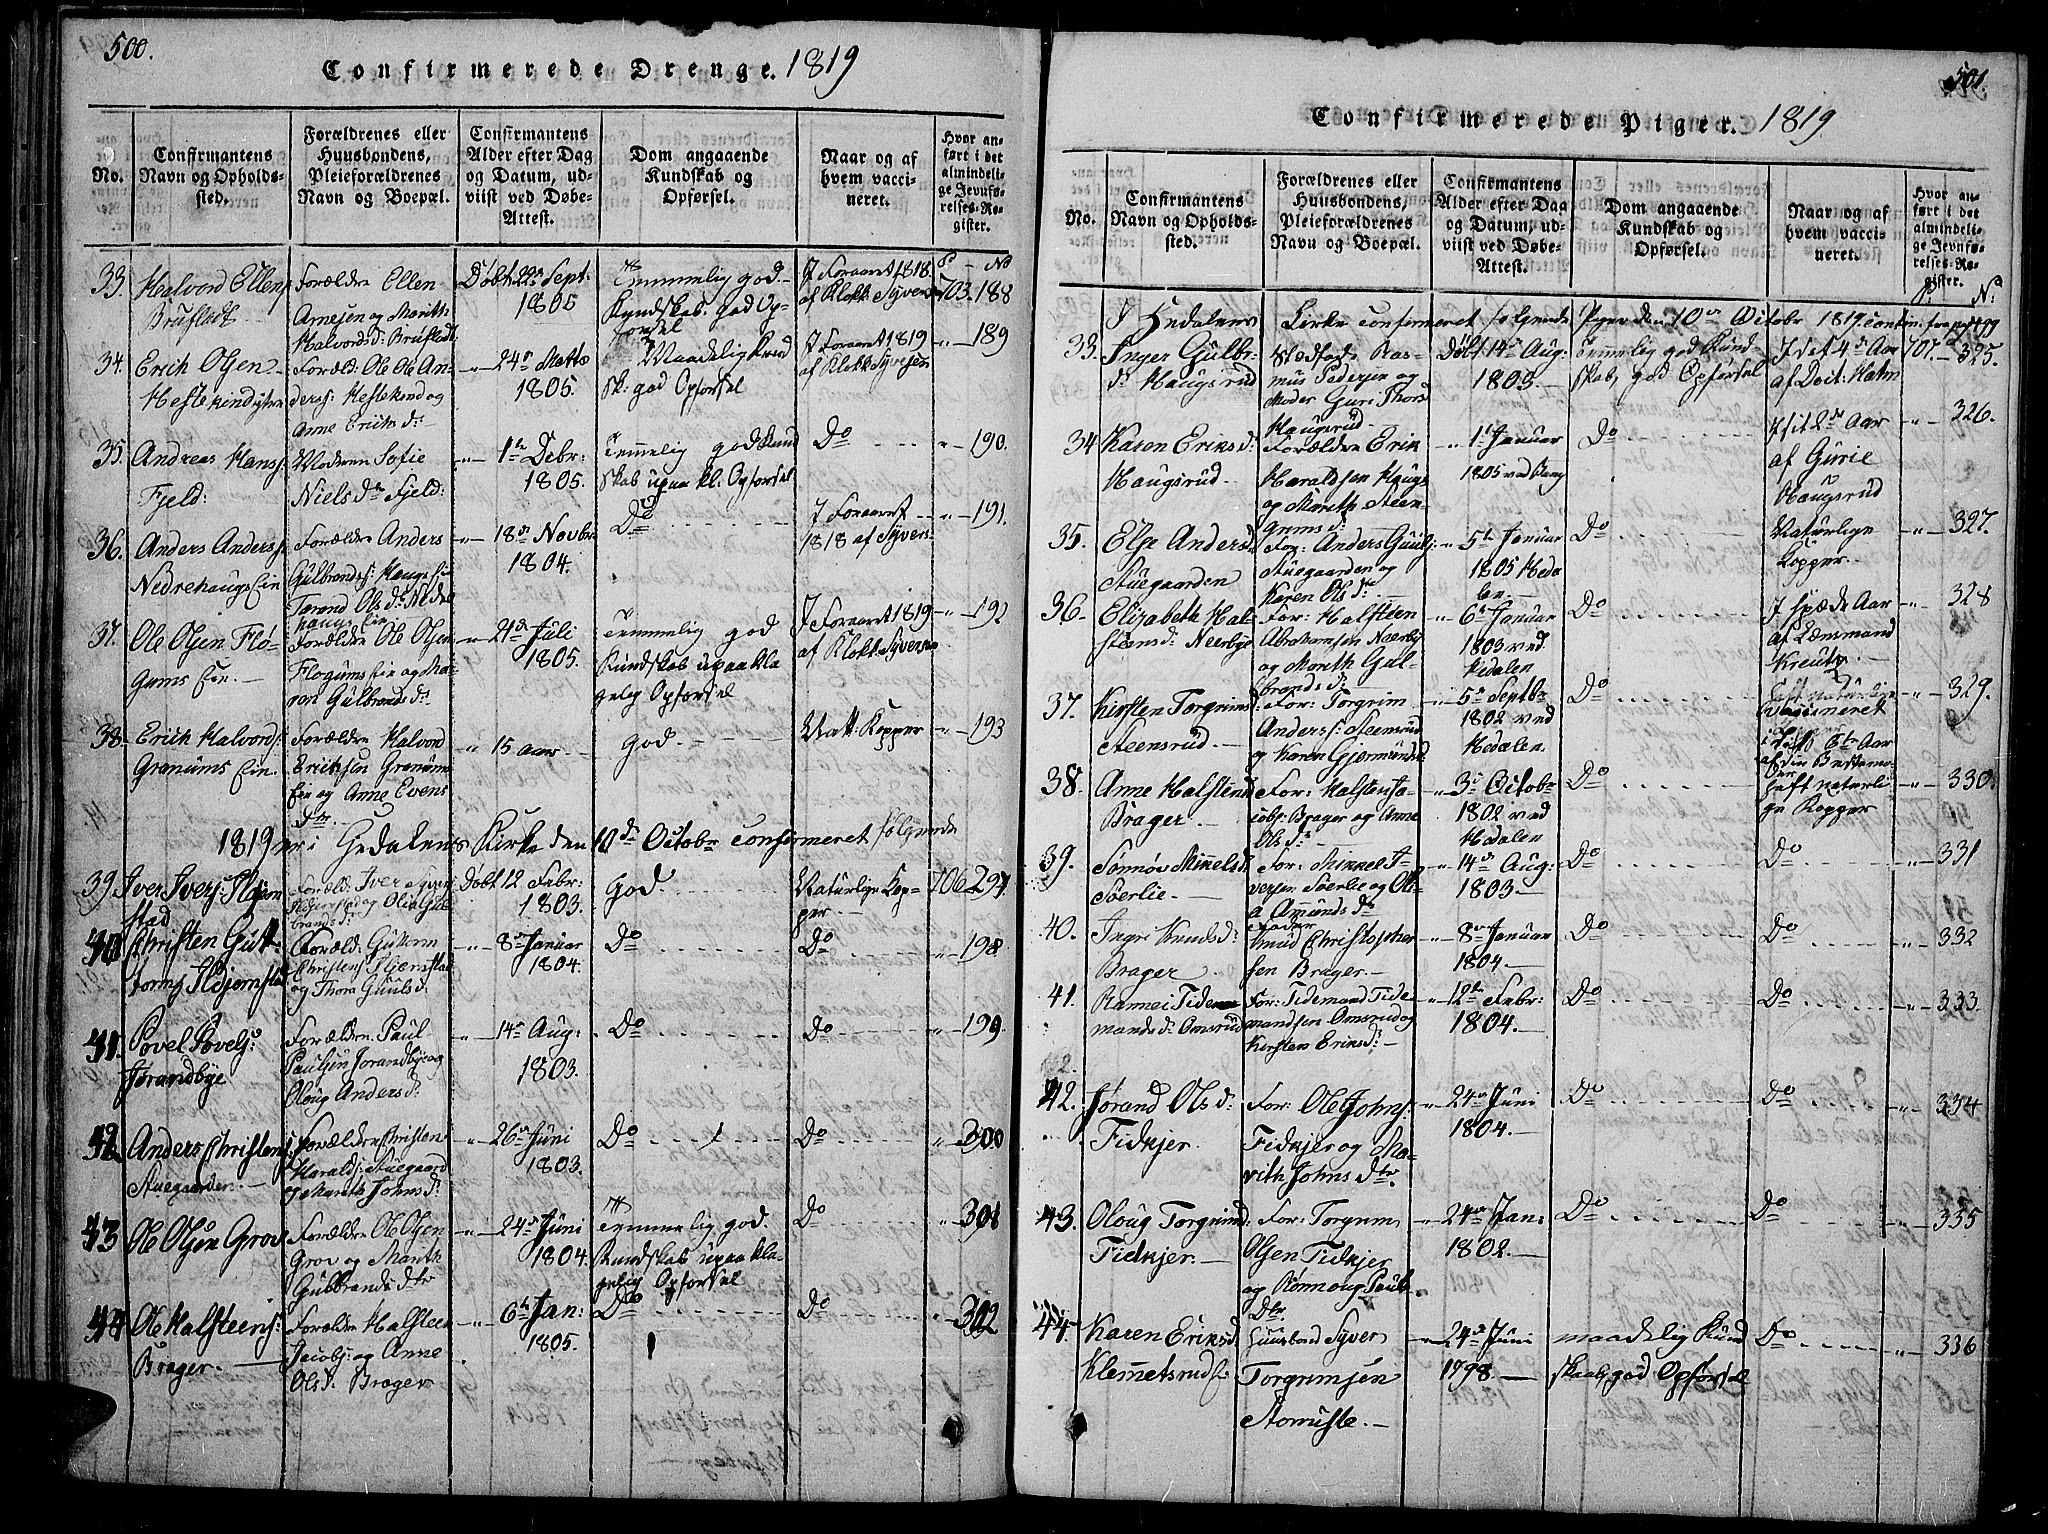 500.
Confirmerede Drenge. 1819
No.
Confirmantens Navn og Opholds-sted.
Forældrenes eller Huusbondens, Pleieforældrenes Navn og Boepæl.
Confirmantens Alder efter Dag og Datum, ud-viist ved Døbe-Attest.
Dom angaaende Kundskab og Opførsel.
Naar og af hvem vacci-neret.
Hvor an-ført i det almindeli-ge Jevnfø-relses-Re-gister.
33. Halvord Ellens Brufladt Forældre Ellen Arnesen og Marith Halvordsd: Brufladt Døbt 22de Sept: 1805 Temmelig god Kyndskab. God Op-førsel I Foraaret 1818. af Klokk: Syvers 703. 188
34. Erich Olsen Heslekindeien Foræld: Ole Ole An-ders: Heslekend og Anne Ericks d: 24de 1805. Maadelig Kund sk: god Opførsel I Foraaret 1819 af Klokk: Syversen 189
35. Andreas Hans: Fjeld: Moderen Sofie Niels dtr Fjeld: 1te Debr: 1805. Temmelig god Kund skab upaa kl. Opførsel Do 190.
36. Anders Anders: Nedrehaugs Eie Forældre Anders Gulbrands: Haugs Eie Jorand Ols dr Nedre haugs Eie 18de Novbr: 1804. Do I Foraaret 1818 af Syvers: 191.
37. Ole Olsen Flø-gums Eie. Forældre Ole Olsen Flogums eie og Ma-ren Gulbrands d: 21de Juli 1805. Temmelig god Kundskab upaakla gelig Opførsel I Foraaret 1819 af Klokk: Syversen 192
38. Erich Halvords: Granums Eie. Forældre Halvord Ericksen Granums Eie og Anne Evens Dtr. 15 aar God. Natt: Kopper 193
1819 er i Hedalens Kirke den 10de Octobr confirmeret følgende
39. Iver Ivers: stad Foræld: Iver og Olia Gul brands d: Døbt 12 Febr: 1803. God. Naturlige Kop-per. 706. 297
40. Christen Gut-torms: Foræld: Guttorm Christens: og Thora Guuls d: 8de Januar 1804. Do Do 198
41. Povel Povels: Jorandbye Forældre Paul Paulsen Jorandbye og Oloug Anders d: 14de Aug: 1803. Do Do 199
42. Anders Christens: Stuegaarden. Forældre Christen Haralds: Stuegaard og Marith Johns d: 26de Juni 1803. Do Do 300
43. Ole Olsen Grov Forældre Ole Olsen Grov og Marith Gulbrands dtr 24de Juni 1804. Temmelig god Kundskab upaakla-gelig Opførsel Do 301
44. Ole Halsteens: Brager. Forældre Halsteen Jacobs: og Anne Ols d: Brager 6te Jan: 1805. Do Do 302
501.
Confirmerede Piger. 1819
No.
Confirmantens Navn og Opholds-sted.
Forældrenes eller Huusbondens, Pleieforældrenes Navn og Boepæl.
Confirmantens Alder efter Dag og Datum, ud-viist ved Døbe-Attest.
Dom angaaende Kundskab og Opførsel.
Naar og af hvem vacci-neret.
Hvor an-ført i det almindeli-ge Jevnfø-relses-Re-gister.
I Hedalens Kirke confirmeret følgende Piger den 10de Octobr 1819. contin: fra pag 499
33. Inger Gulbr: d: Haugsrud Stedfader Ras-mus Pedersen og Moder Guri Thors Haugsrud Døbt 14de Aug: 1803. Temmelig god Kund skab, god Opførsel I det 4de Aar af Holm 707. 325.
34 Karen Eriks d: Haugsrud Forældre Erik Haraldsen Haugs og Marith Steen-grims d: 1te Januar 1805 ved Bang Do I sit 2det Aar af Gurie Haugsrud 326.
35. Else Anders d: Stuegaarden For: Anders Guul: Stuegaarden og Karen Ols d: 5te Januar 1805 Heda len. Do Naturlige Kopper. 327.
36. Elizabeth Hal-steens d: Neerbye For: Halsteen Abrahamsen Neerbye og Marith Gul-brands d: 6te Januar 1803 ved Hedalen Do I spæde Aar af Lænsmand Kreutz. 328
37. Kirsten Torgrims d: Steensrud For: Torgrim Anders: Steensrud og Karen Gjermunds d: 5te Septbr 1802 ved Hedalen Do Haft naturlige Vaccineret 329.
38. Anne Halsteens d: Brager. For: Halsten Ja-cobs: Brager og Anne Ols d: 3de Octobr 1802 ved Hedalen Do haft naturli-ge Kopper 330.
39. Sønnøv Mikkels d: Soerlie. For: Mikkel I-versen Soerlie og Oli-a Amunds dr 14de Aug: 1803. Do Do 331
40. Ingri Knuds d: Brager. Fader Knud Christopher sen Brager. 8de Januar 1804. Do Do 332
41. Rannei Tide mands d: Omsrud For: Tidemand Tide mandsen Omsrud og Kirsten Eriks d: 12te Febr: 1804. Do Do 333
42. Jørand Ols d: Fidkjer. For: Ole Johns: Fidkjer og Ma-rith Johns dtr. 24de Juni 1804. Do Do 334
43. Oloug Torgrims d: Fidkjer. For: Torgrim Olsen Fidkjer og Rønnoug Pauls Dtr. 24de Jan: 1802. Do Do 335
44. Karen Eriks d. Klemmetsrud Huusbond Syver Torgrimsen Storrusle. 24de Juni 1798. maadelig Kund skab, god Opførsel Do 336